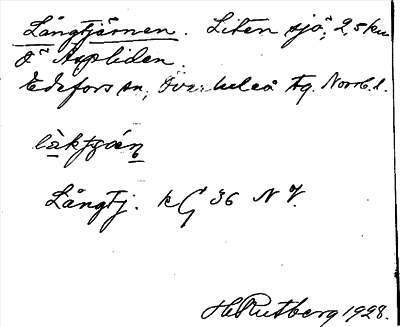 Långtjärnen. Liten sjö, 2,5 km
Ö Aspliden.
Edefors sn, Överluleå tg. Norrb. l.
Långtj. kG 36 N V.
H. Rutberg 1928.